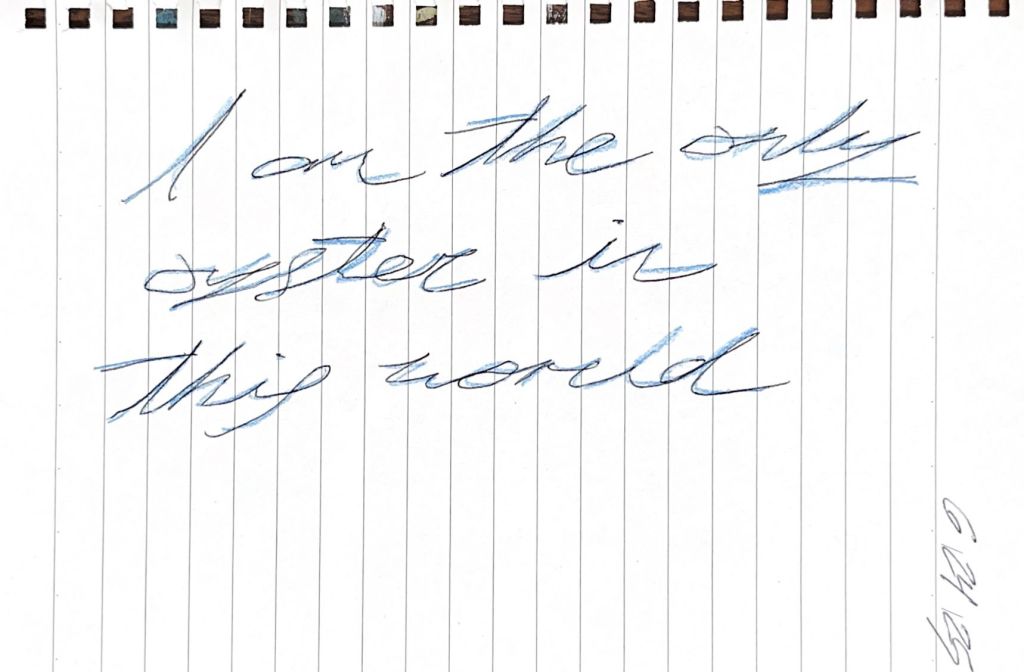 I am the only
oyster in
this world